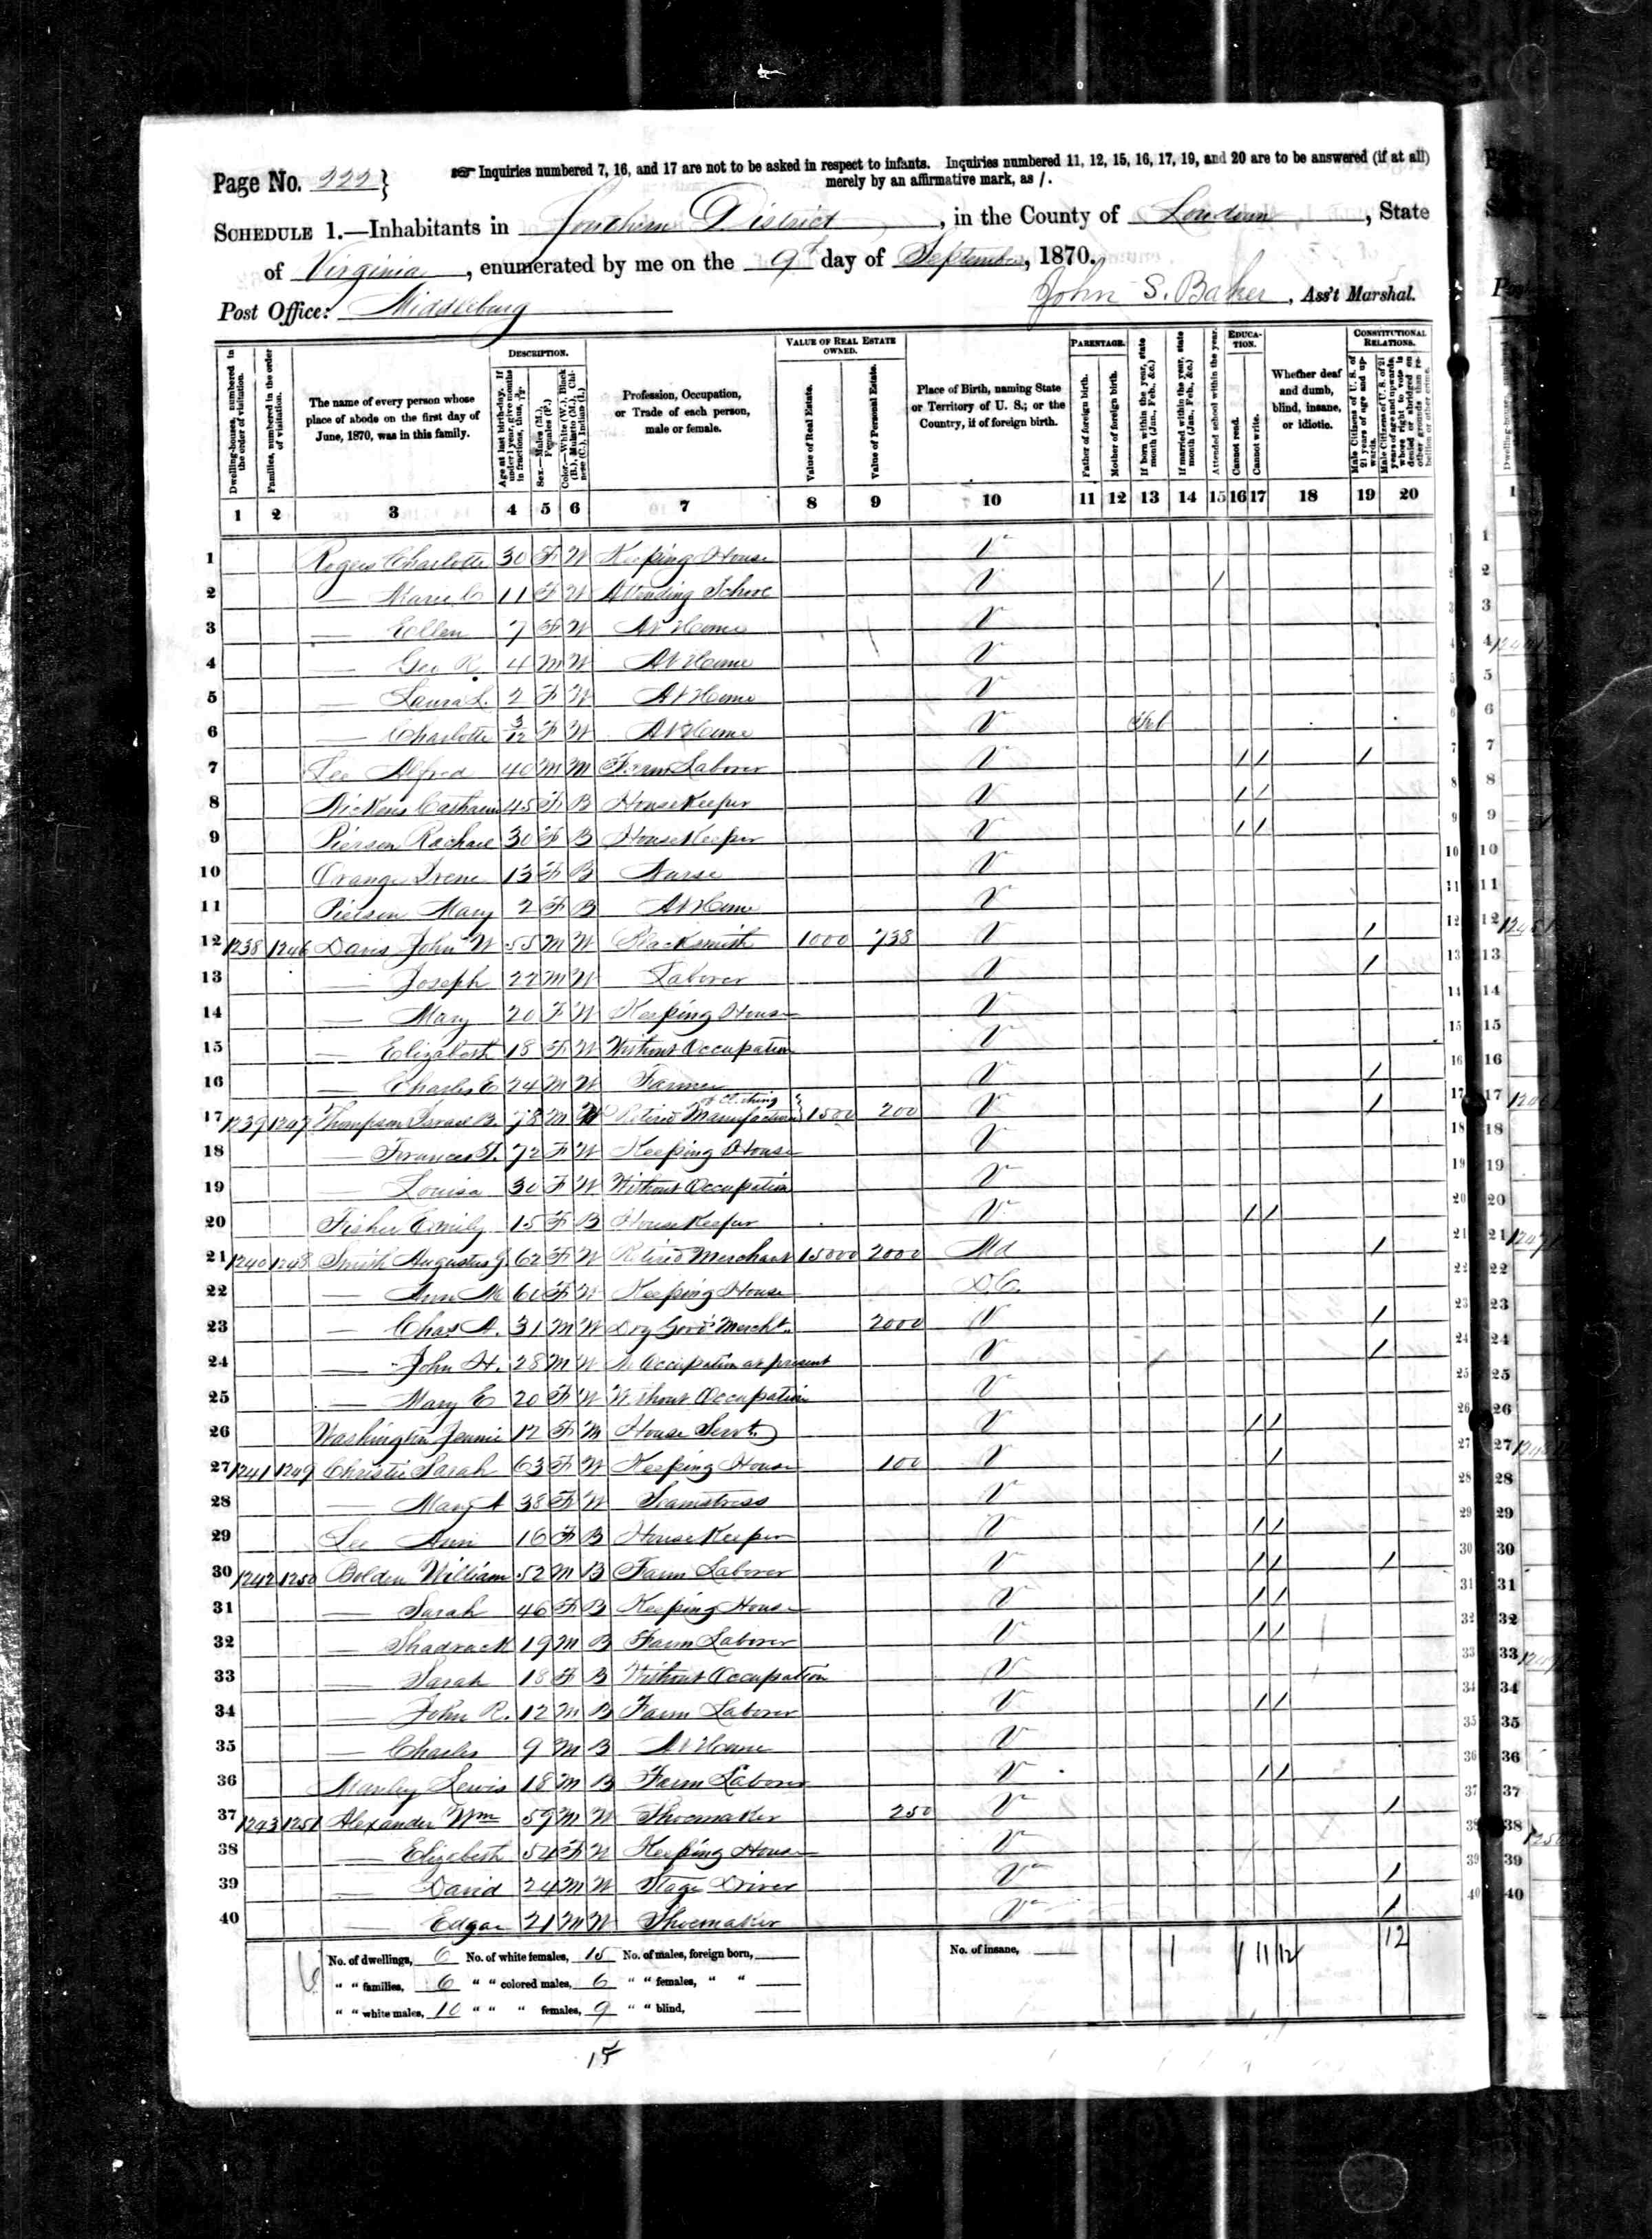 Page No. 222}
Inquiries numbered 7, 16, and 17 are not to be asked in respect to infants. Inquiries numbered 11, 12, 15, 16, 17, 19, and 20 are to be answered (if at all)
merely by an affirmative mark, as /.
SCHEDULE 1.—Inhabitants in Southern District, in the County of Loudoun, State
of Virginia, enumerated by me on the 9th day of September, 1870.
Post Office: Middleburg
John S. Baker, Ass't Marshal.
Dwelling-houses, numbered in the order of visitation.
Families, numbered in the order of visitation.
The name of every person whose place of abode on the first day of June, 1870, was in this family.
DESCRIPTION.
Age at last birth-day. If under 1 year, give months in fractions, thus, 3/12
Sex.—Males (M.), Females (F.)
Color.—White (W.), Black (B.), Mulatto (M.), Chinese (C.), Indian (I.)
Profession, Occupation, or Trade of each person, male or female.
VALUE OF REAL ESTATE OWNED.
Value of Real Estate.
Value of Personal Estate.
Place of Birth, naming State or Territory of U. S.; or the Country, if of foreign birth.
PARENTAGE.
Father of foreign birth.
Mother of foreign birth.
If born within the year, state month (Jan., Feb., &c.)
If married within the year, state month (Jan., Feb., &c.)
Attended school within the year.
EDUCATION.
Cannot read.
Cannot write.
Whether deaf and dumb, blind, insane, or idiotic.
CONSTITUTIONAL RELATIONS.
Male Citizens of U. S. of 21 years of age and upwards.
Male Citizens of U. S. of 21 years of age and upwards, whose right to vote is denied or abridged on other grounds than rebellion or other crime.
1 2 3 4 5 6 7 8 9 10 11 12 13 14 15 16 17 18 19 20
1 Rogers Charlotte 30 F W Keeping House V
2 — C 11 F W Attending School V /
3 — Ellen 7 F W At Home V
4 — Geo R 4 M W At Home V
5 — Laura L. 2 F W At Home V
6 — Charlotte 3/12 F W At Home V Feb
7 Lee Alfred 40 M M Farm Laborer V / / /
8 45 F B House Keeper V / /
9 Pierson Rachael 30 F B House Keeper V / /
10 Orange Irene 13 F B Nurse V
11 Pierson Mary 2 F B At Home V
12 1238 1246 Davis John W 55 M W Blacksmith 1000 738 V /
13 — Joseph 22 M W Laborer V /
14 — Mary 20 F W Keeping House V
15 — Elizabeth 18 F W Without Occupation V
16 — Charles E 24 M W Farmer V /
17 1239 1247 Thompson Israel B. 78 M W Retired Manufacturer of Clothing 1500 200 V /
18 — Frances T. 72 F W Keeping House V
19 — Louisa 30 F W Without Occupation V
20 Fisher Emily 15 F B House Keeper V / /
21 1240 1248 Smith Augustus G 62 F W Retired Merchant 15000 2000 Md /
22 — Ann M 60 F W Keeping House D.C.
23 — Chas A. 31 M W Dry Goods Mercht. 2000 V /
24 — John H. 28 M W No Occupation at present V /
25 — Mary E 20 F W Without Occupation V
26 Washington Jennie 12 F M House Servt. V / /
27 1241 1249 Christie Sarah 63 F W Keeping House 100 V /
28 — Mary A 38 F W Seamstress V
29 Lee Ann 16 F B House Keeper V / /
30 1242 1250 Bolden William 52 M B Farm Laborer V / / /
31 — Sarah 46 F B Keeping House V / /
32 — Shadrack 19 M B Farm Laborer V / /
33 — Sarah 18 F B Without Occupation V
34 — John R. 12 M B Farm Laborer V / /
35 — Charles 9 M B At Home V
36 Manley Lewis 18 M B Farm Laborer V / /
37 1243 1251 Alexander Wm 59 M W Shoemaker 250 V /
38 — Elizabeth 54 F W Keeping House V
39 — David 24 M W Stage Driver V /
40 — Edgar 21 M W Shoemaker V /
No. of dwellings, 6 No. of white females, 15 No. of males, foreign born, No. of insane, 1 1 11 12 12
" " families, 6 " " colored males, 6 " " females, " "
" " white males, 10 " " " females, 9 " " blind,
15